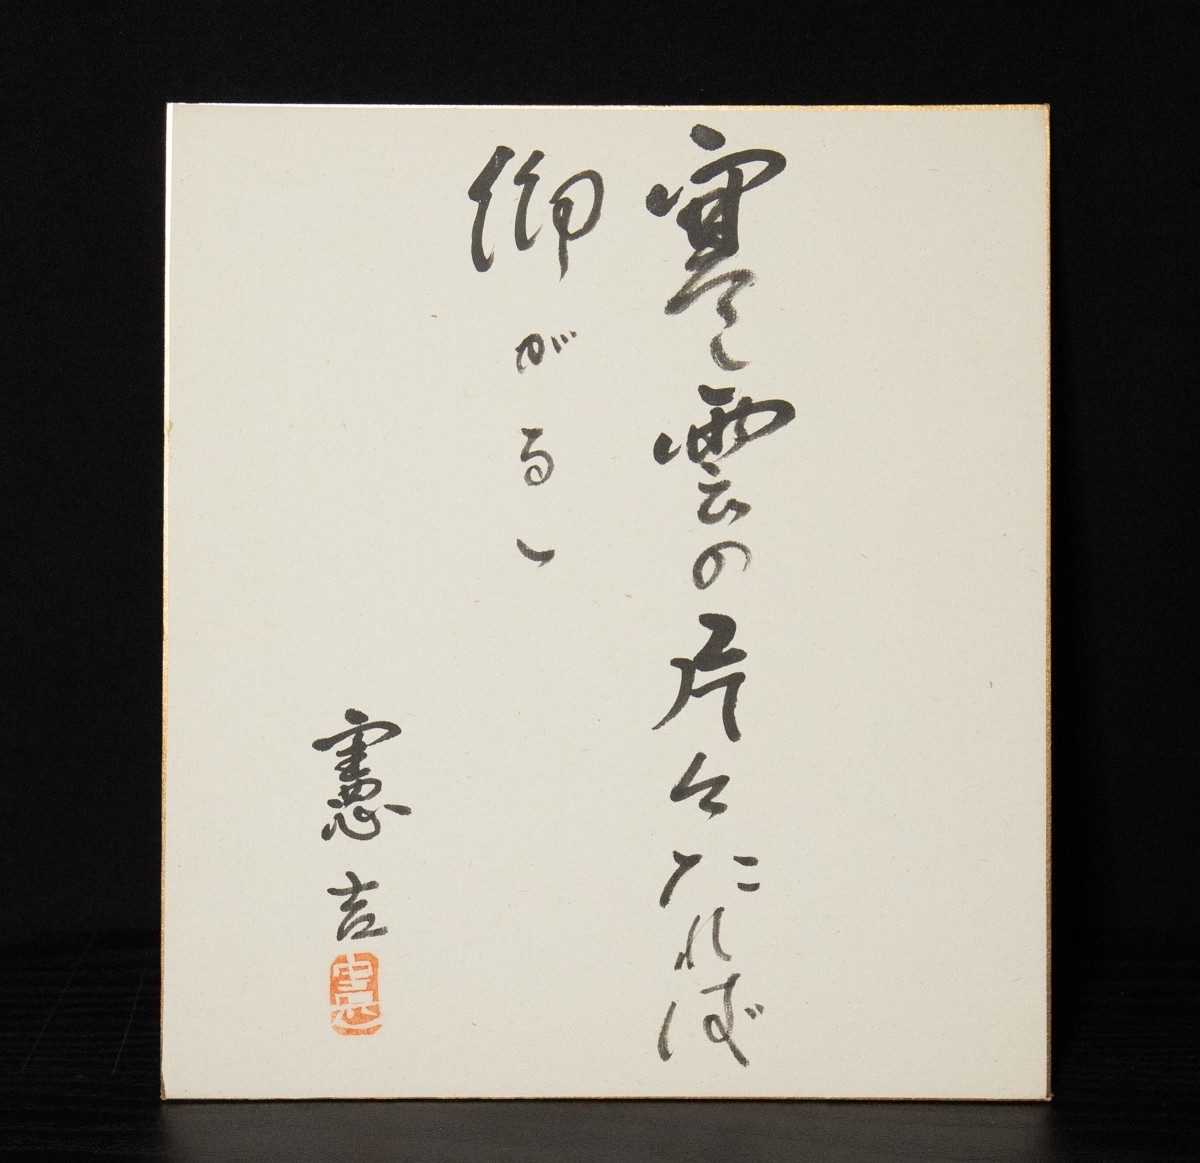 寒雲の片々たれば
仰がるゝ
憲吉
憲